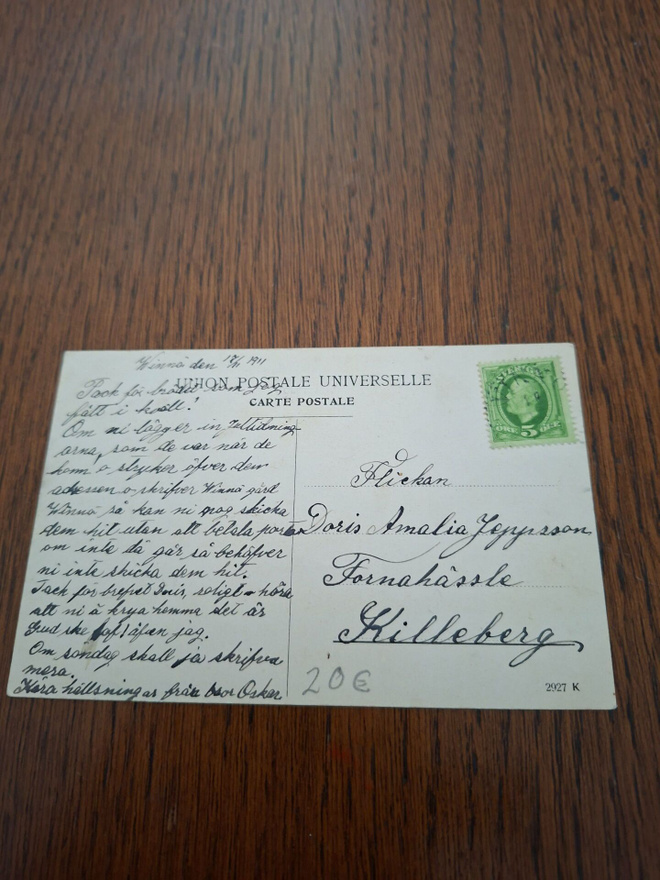 Winnö den 1911
UNION POSTALE UNIVERSELLE
CARTE POSTALE
Tack för som jag
fått i kväll!
Om ni lägger in
arna, som de var när de
kom o stryker öfver den
adressen o skrifver Winnö gård
Winnö så kan ni nog skicka
dem hit utan att betala porto
om inte då går så behöfver
ni inte skicka dem hit.
Tack för brefvet roligt höra
att ni ä krya hemma det är
Gud ske lof äfven jag.
Om söndag skall ja skrifva
mera.
Kära hälsningar från bror Oskar
SVERIGE
ÖRE 5 ÖRE
Flickan
Doris Amalia Jeppsson
Fornahässle
Killeberg
20€
2927 K